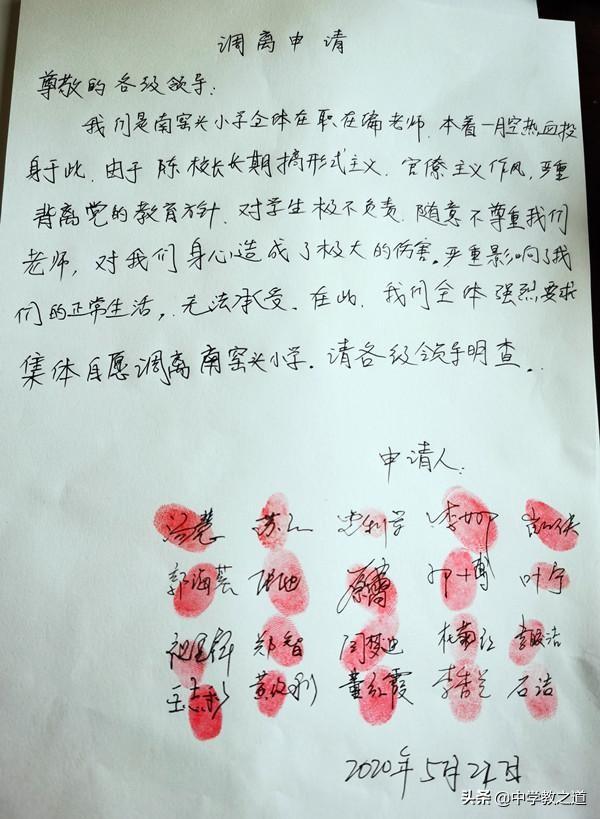 调离申请
尊敬的各级领导:
我们是南窑头小学全体在职在编老师.本着一腔热血投
身于此.由于陈校长长期搞形式主义.官僚主义作风,严重
背离党的教育方针.对学生极不负责.随意不尊重我们
老师,对我们身心造成了极大的伤害。严重影响了我
们的正常生活,.无法承受.在此.我们全体强烈要求
集体自愿调离南窑头小学.请各级领导明查..
申请人:
李娜
郭海芸 叶宁
郑智 闫梦迪
王志彩 董红霞 石洁
2020年5月21日
头条@中学教之道